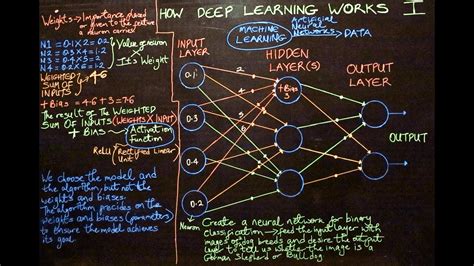 HOW DEEP LEARNING WORKS I
Weights → Importance placed
or given to the data
a neuron carries
N1 = 0.1 X 2 = 0.2
Value of neuron
X
It's Weight
WEIGHTED
SUM OF
INPUTS
4.6
+ Bias = 4.6 + 3 = 7.6
The result of The WEIGHTED
SUM OF INPUTS (WEIGHTS X INPUT)
+ BIAS → Activation
Function
ReLU → Rectified Linear
Unit
We choose the model and
the algorithm, but not the
weights and biases.
The algorithm decides on the
weights and biases (parameters)
to ensure the model achieves
its goal.
MACHINE
LEARNING
Artificial
Neural
Networks → DATA
INPUT
LAYER
HIDDEN
LAYER(S)
OUTPUT
LAYER
0.1
0.3
0.4
0.2
Neuron
2
4
5
+ Bias
3
OUTPUT
Create a neural network for binary
classification → feed the input layer with
images of dog breeds and desire the output
layer to tell us whether the image is a
German Shepherd or Bulldog